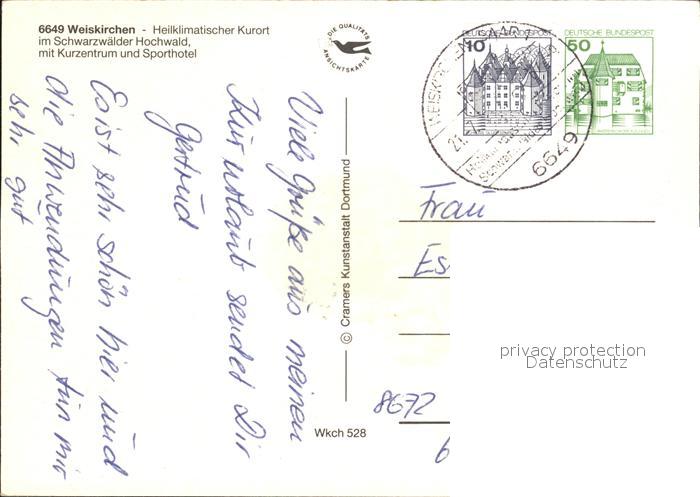 6649 Weiskirchen - Heilklimatischer Kurort
im Schwarzwälder Hochwald,
mit Kurzentrum und Sporthotel
DIE QUALITÄTS
ANSICHTSKARTE
Viele Grüße aus meinen
Kurzurlaub sendet Dir
Gertrud
Es ist sehr schön hier und
die Anwendungen tun mir
sehr gut
© Cramers Kunstanstalt Dortmund
Wkch 528
DEUTSCHE BUNDESPOST
10
DEUTSCHE BUNDESPOST
50
WEISKIRCHEN, SAAR 1
21.
6649
Frau
Es
8672
privacy protection
Datenschutz